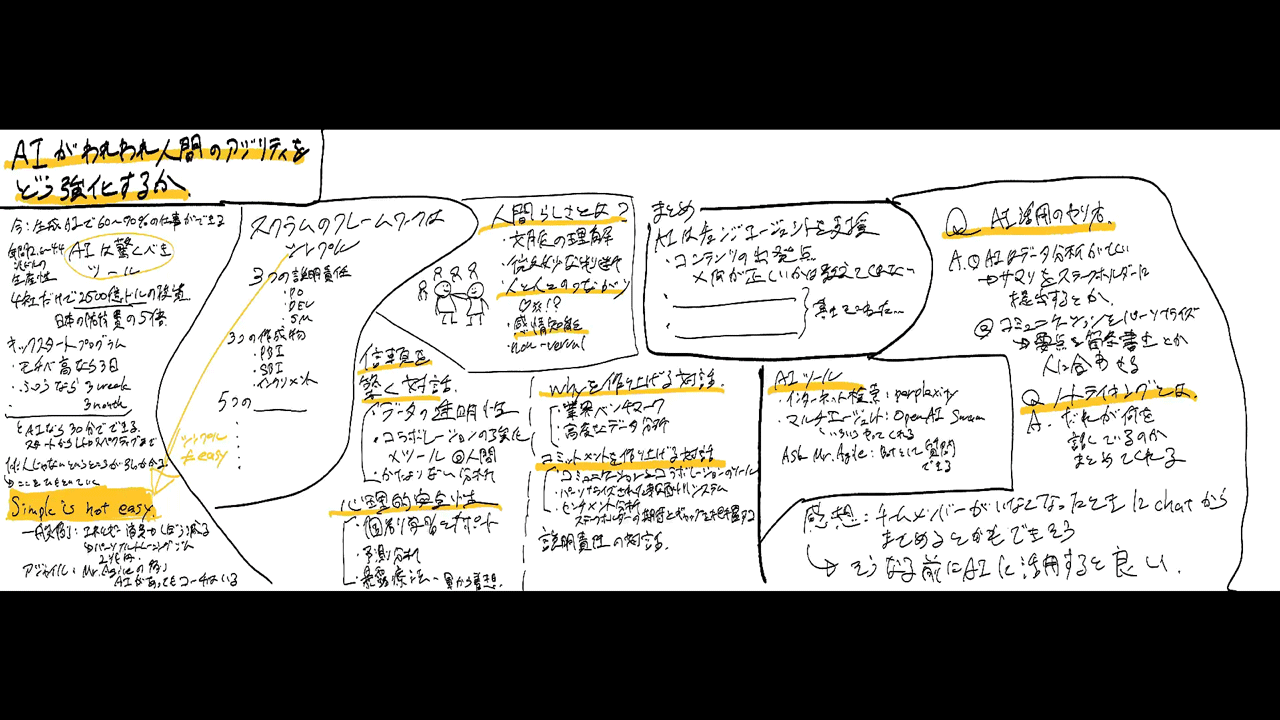 AIがわれわれ人間のアジリティを
どう強化するか
今:生成AIで60〜70%の仕事ができる
AIは驚くべき
ツール
生産性
4社だけで2500億ドルの投資
日本の
の5倍
キックスタートプログラム
・モチベ高なら3日
・ふつうなら 3week
3month
AIなら30分でできる
Simple is not easy
アジャイル: Mr.Agileの例
AIがあってもコーチはいる
スクラムのフレームワークは
シンプル
3つの説明責任
・PO
・DEV
・SM
3つの作成物
・PBI
・SBI
・インクリメント
5つの
シンプル
≠easy
人間らしさとは?
・文脈の理解
・人と人とのつながり
・感情知能
・non-verbal
信頼を
築く対話
・データの透明性
・コラボレーションの強化
×ツール ◎人間
・かたよりない分析
心理的安全性
・個別学習をサポート
・予測分析
・暴露療法
Whyを作り上げる対話
・業界ベンチマーク
・高度なデータ分析
コミットメントを作り上げる対話
・コミュニケーションとコラボレーションのツール
・パーソナライズされた
システム
・センチメント分析
ステークホルダーの期待とギャップを把握する
説明責任の対話
まとめ
AIはチェンジエージェントを支援
・コンテンツの出発点
×何が正しいかは教えてくれない
AIツール
・インターネット検索: perplaxity
・マルチエージェント: OpenAI Swarm
いろいろやってくれる
Ask Mr. Agile: Botとして質問
できる
Q AI活用のシナリオ
A. ① AIはデータ分析がつよい
→サマリをステークホルダーに
提出するとか
② コミュニケーションをパーソナライズ
→要点を箇条書きとか
人に合わせる
Q ノートテイキングとは
A. だれが何を
話しているのか
まとめてくれる
感想: チームメンバーがいなくなったときにchatから
まとめるとかもできそう
→そうなる前にAIに活用すると良い